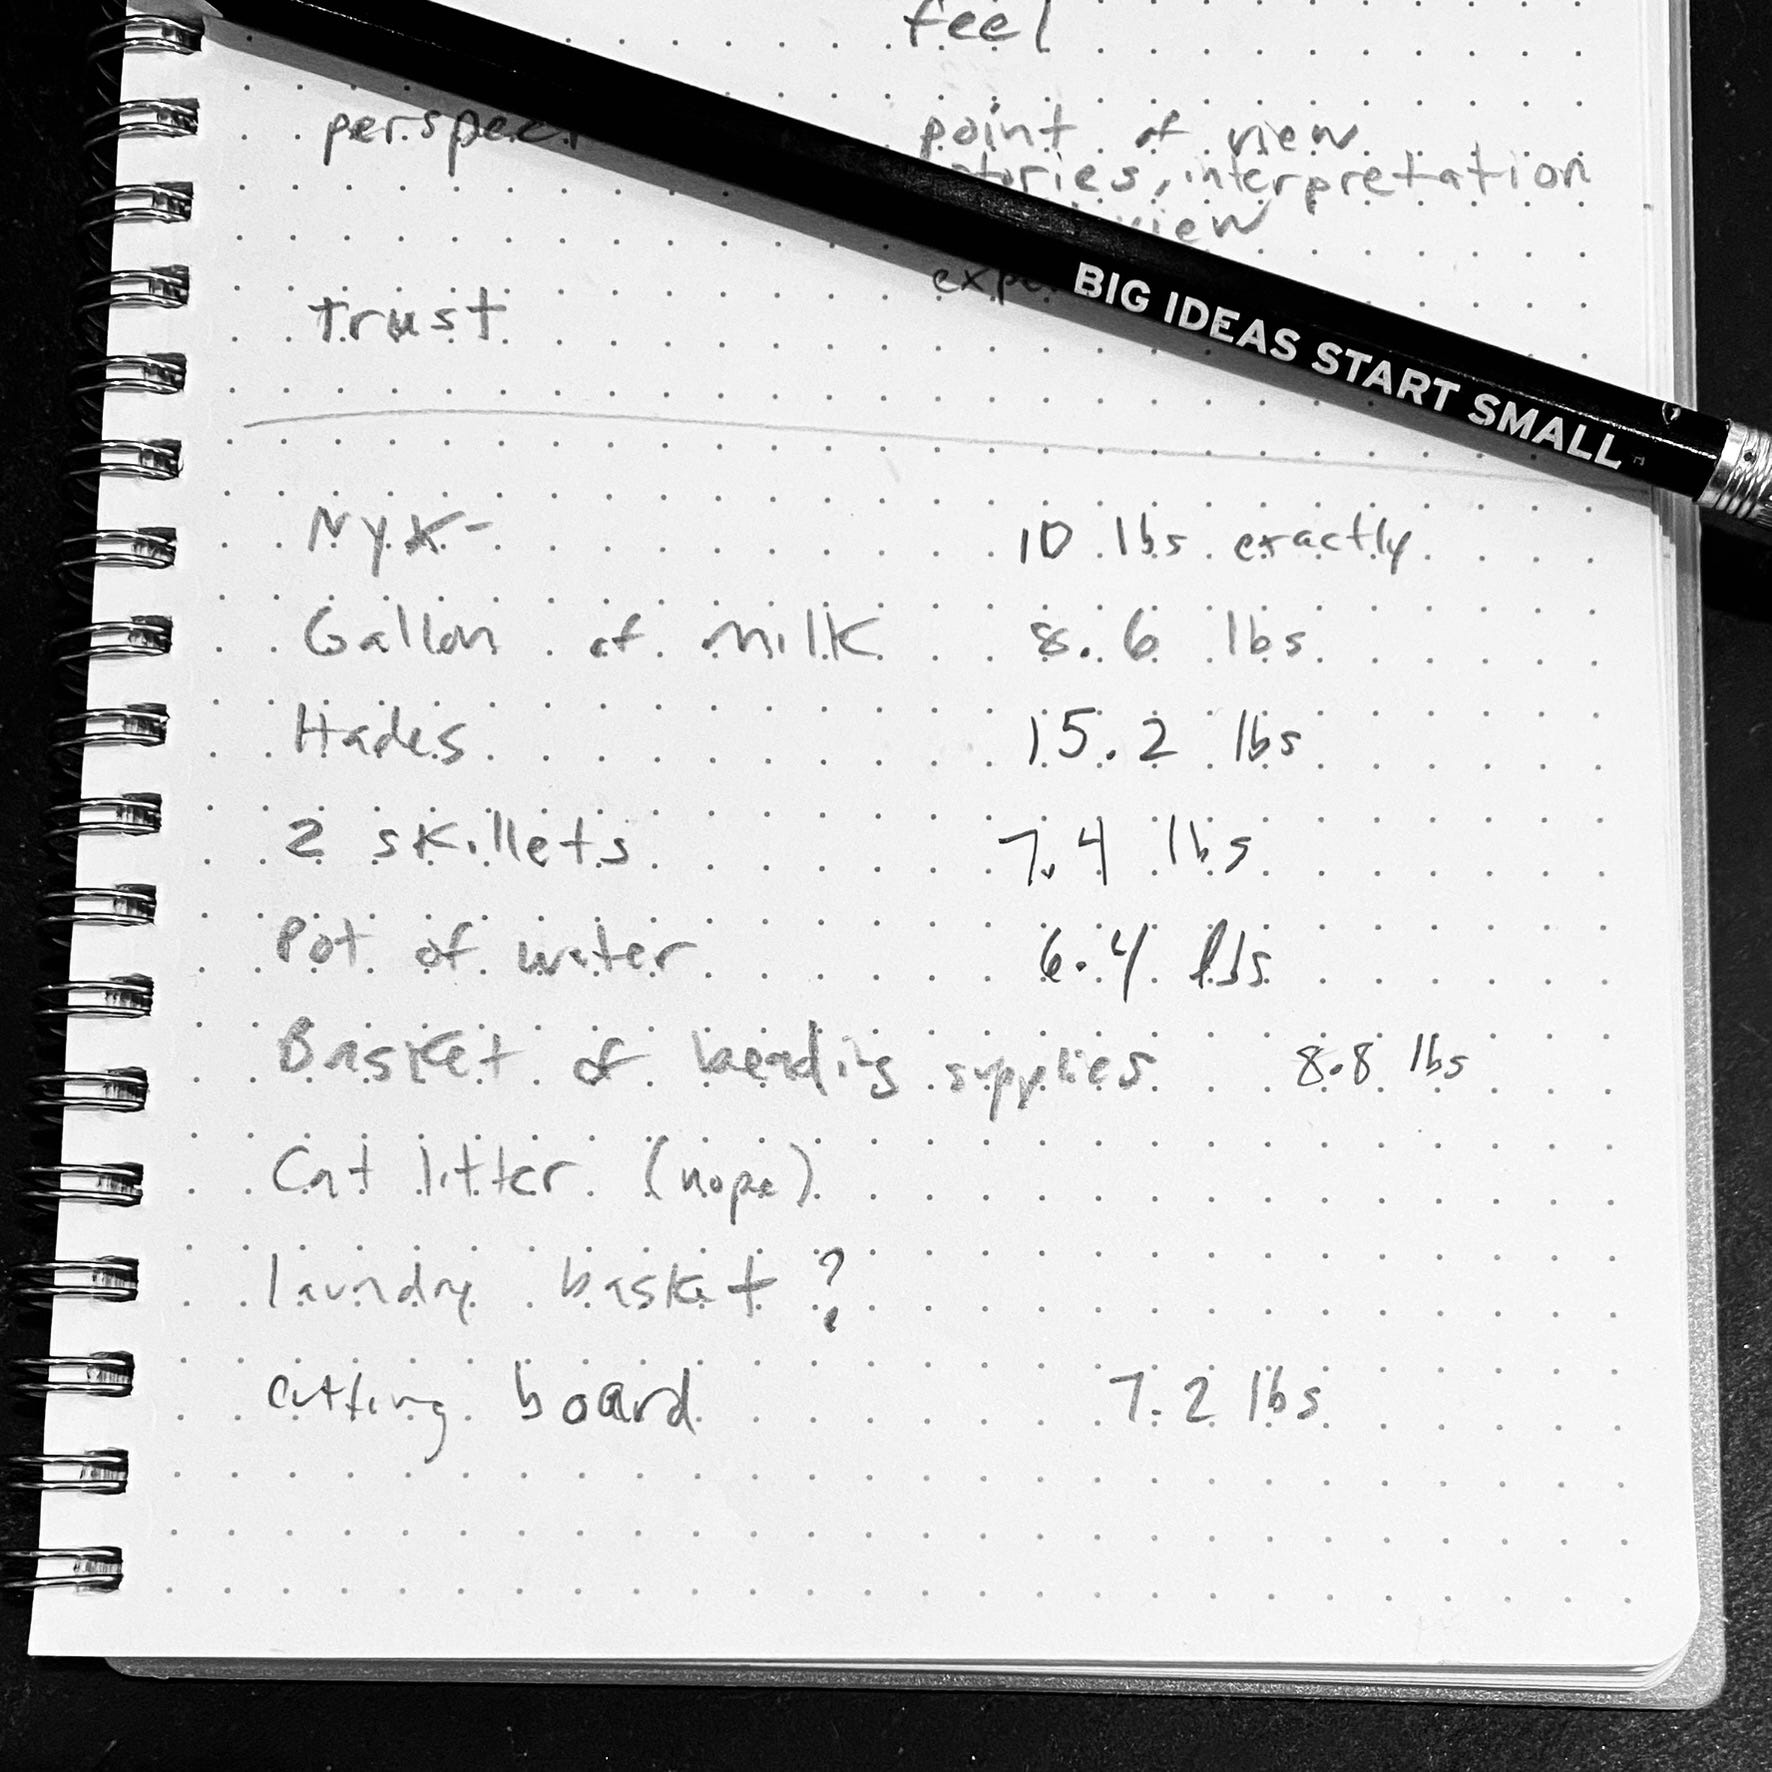 feel
point of view
interpretation
BIG IDEAS START SMALL
trust
Nyx - 10 lbs exactly
Gallon of milk 8.6 lbs
Hades 15.2 lbs
2 skillets 7.4 lbs
Pot of water 6.4 lbs
Basket of beading supplies 8.8 lbs
Cat litter (nope)
laundry basket ?
cutting board 7.2 lbs